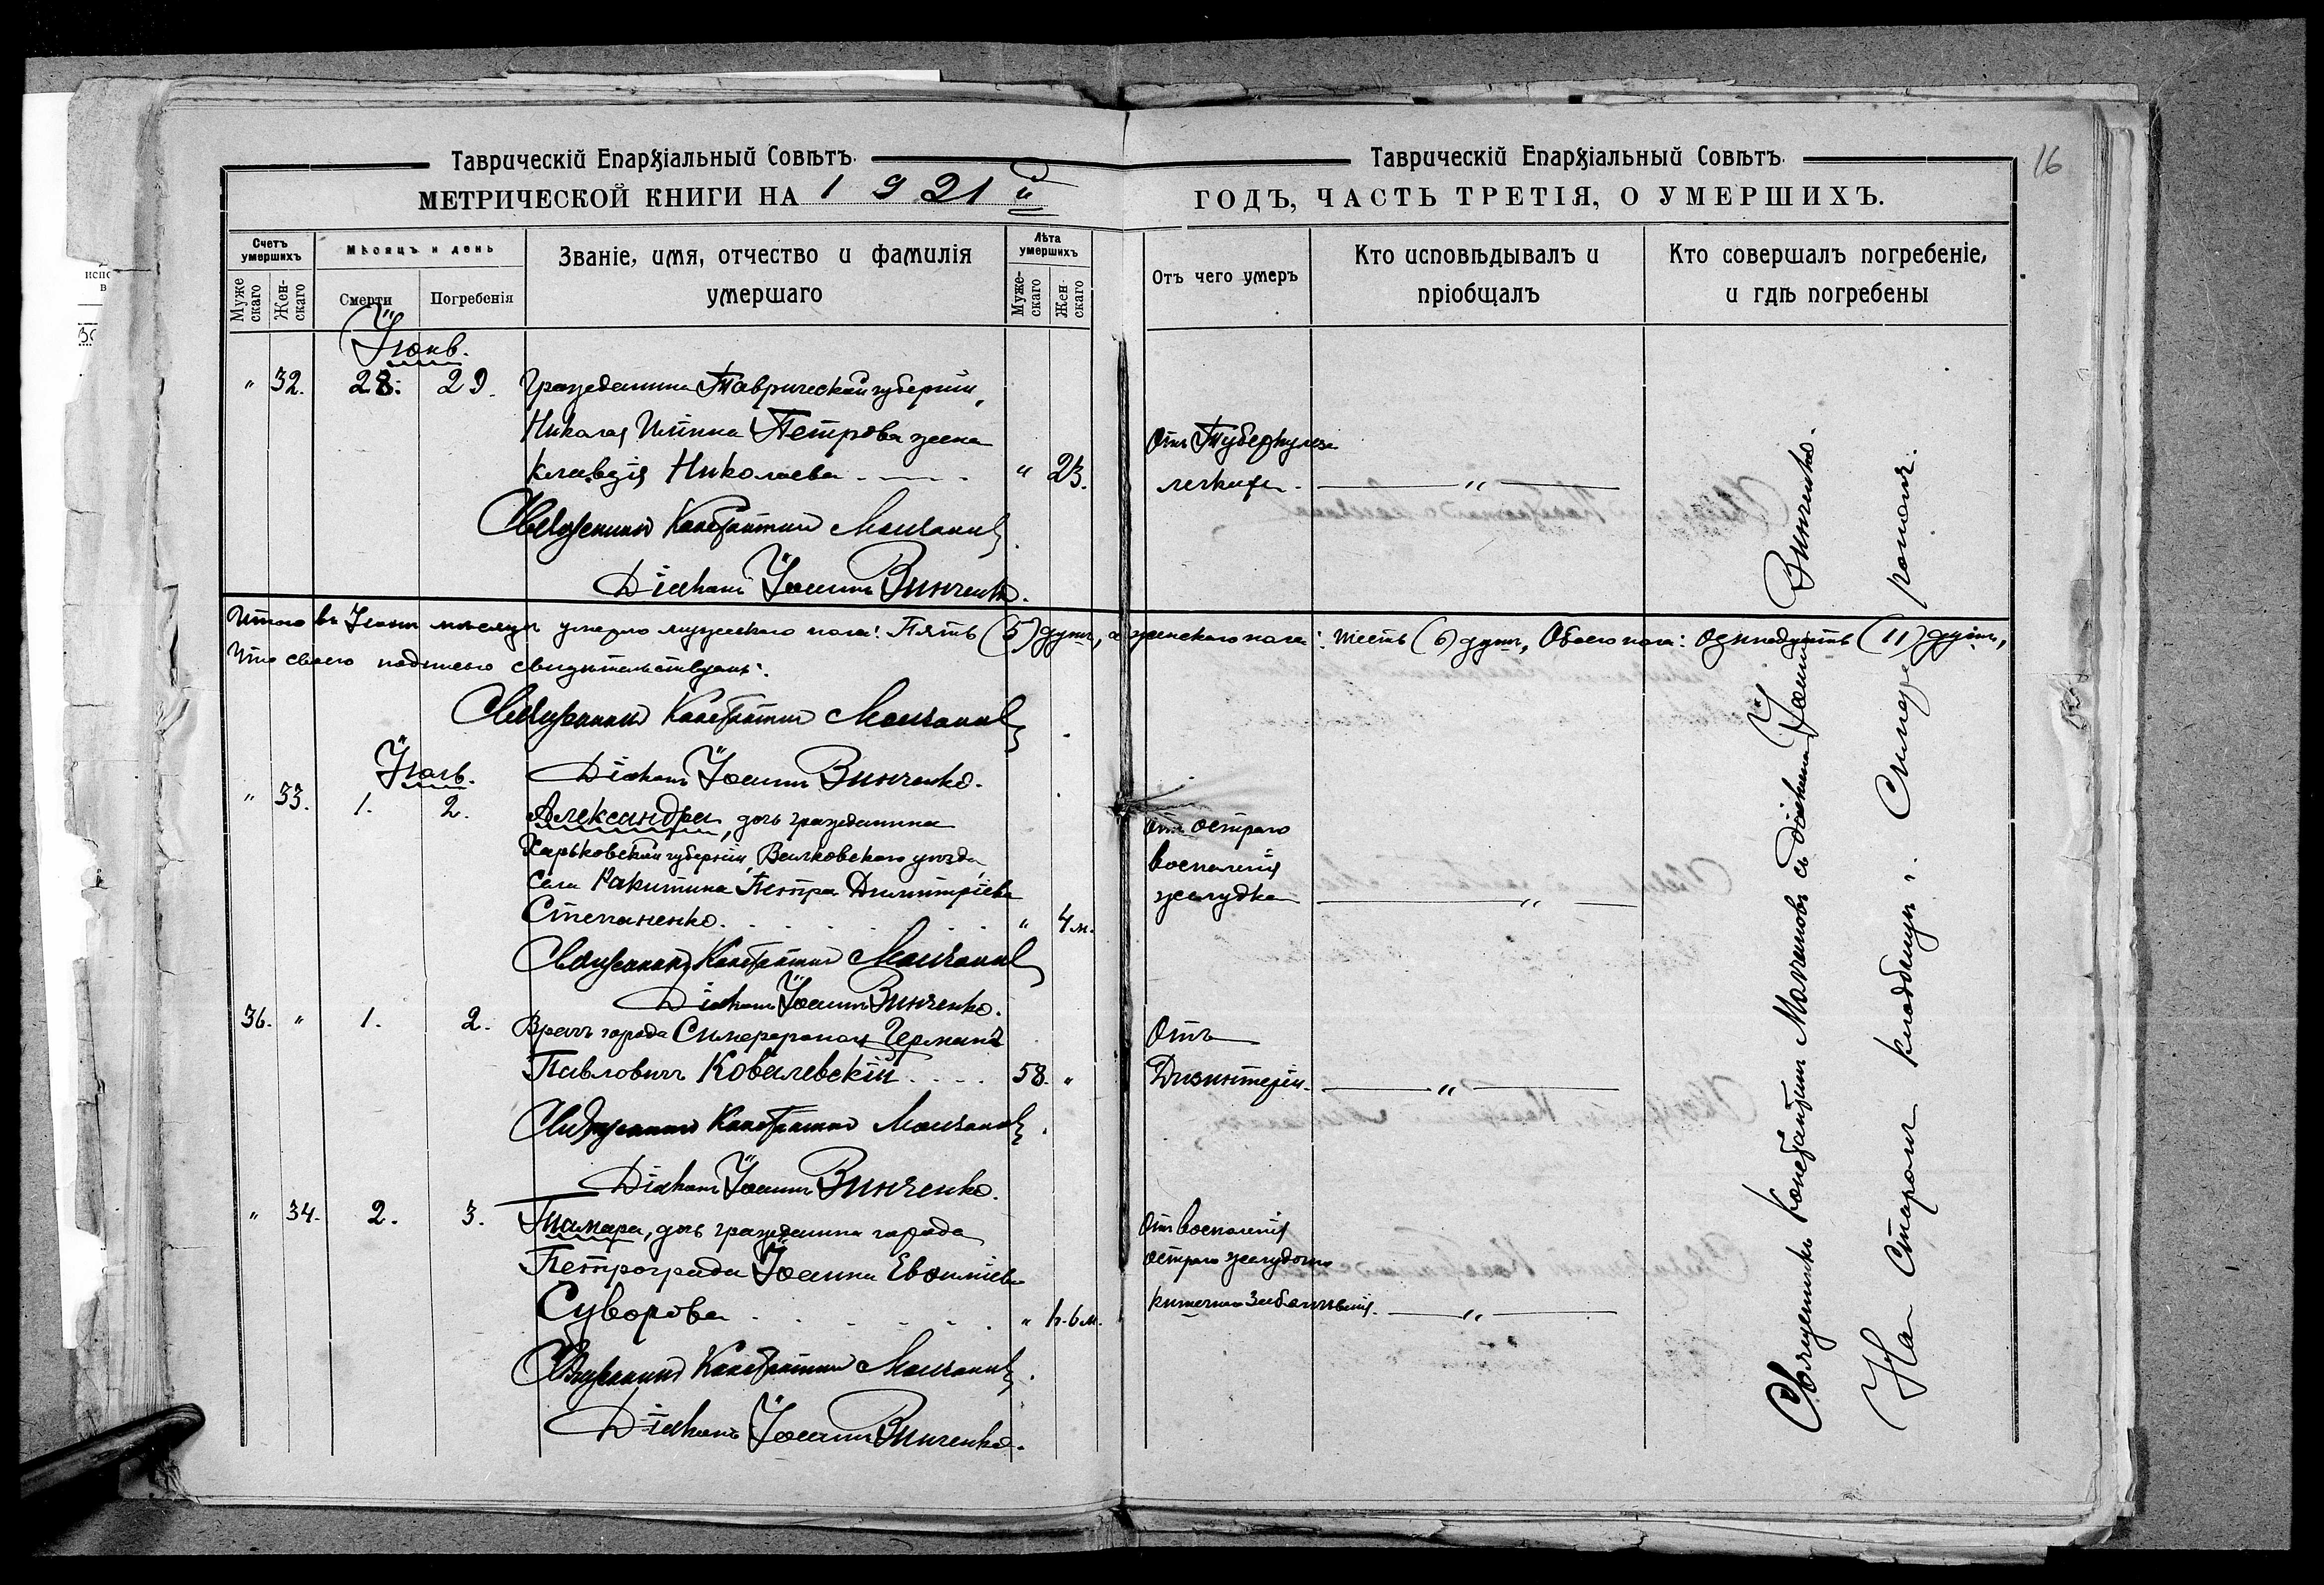 Таврическій Епархіальный Совѣтъ.
МЕТРИЧЕСКОЙ КНИГИ НА 1921й
Счетъ умершихъ
Мѣсяцъ и день
Званіе, имя, отчество и фамилія умершаго
Лѣта умершихъ
Мужескаго
Женскаго
Смерти
Погребенія
Мужескаго
Женскаго
Іюнь.
" 32. 28. 29. Гражданина Таврической губерніи,
Николая Ильина Петрова жена
Клавдія Николаева " 23.
Священникъ Константинъ Молчановъ
Діаконъ Іоаннъ Винченко.
Итого въ Іюнѣ мѣсяцѣ умерло мужескаго пола: Пять (5) душъ, а женскаго пола: шесть (6) душъ, Обоего пола: одинадцать (11) душъ,
Что своею подписью свидѣтельствуемъ:
Священникъ Константинъ Молчановъ
Іюль.
Діаконъ Іоаннъ Винченко.
" 33. 1. 2. Александра, дочь гражданина
Харьковской губерніи, Валковскаго уѣзда,
села Ракитина Петра Димитріева
Степаненко. " 4 м.
Священникъ Константинъ Молчановъ
Діаконъ Іоаннъ Винченко.
36. " 1. 2. Врачъ города Симферополя Германъ
Павловичъ Ковалевскій 58. "
Священникъ Константинъ Молчановъ
Діаконъ Іоаннъ Винченко.
" 34. 2. 3. Тамара, дочь гражданина города
Петрограда Іоанна
Суворова
Священникъ Константинъ Молчановъ
Діаконъ Іоаннъ Винченко.
Таврическій Епархіальный Совѣтъ.
16
ГОДЪ, ЧАСТЬ ТРЕТІЯ, О УМЕРШИХЪ.
Отъ чего умеръ
Кто исповѣдывалъ и пріобщалъ
Кто совершалъ погребеніе, и гдѣ погребены
Отъ Туберкулеза
легкихъ. "
Отъ остраго
воспаленія
желудка "
Отъ
Дизинтеріи. "
Отъ воспаленія
остраго желудочно
кишечно заболѣванія. "
Священникъ Константинъ Молчановъ съ діакономъ Іоанномъ Винченко.
На Старомъ кладбищѣ г. Симферополя.